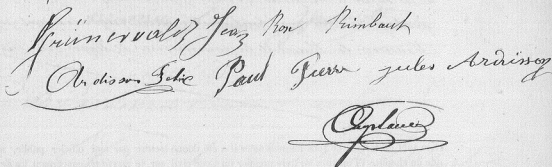 Grünervald Jean Rimbaut
Ardisson Felix Paul Pierre jules Ardisson